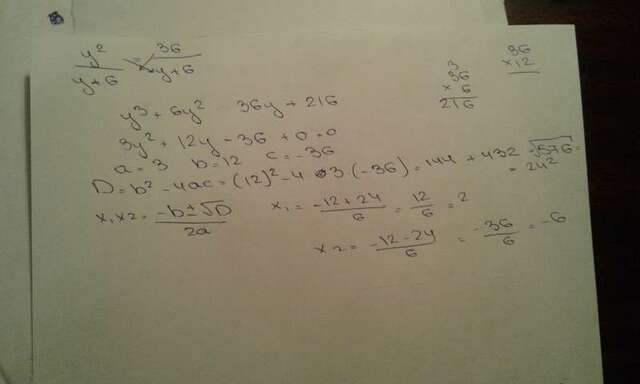 y²/(y+6) = 36/(y+6)
3
36
× 6
216
36
× 12
y³ + 6y² 36y + 216
3y² + 12y - 36 + 0 = 0
a = 3 b = 12 c = -36
D = b² - 4ac = (12)² - 4 · 3 · (-36) = 144 + 432 = √576 =
= 24²
x₁x₂ = (-b ± √D)/2a
x₁ = (-12 + 24)/6 = 12/6 = 2
x₂ = (-12 - 24)/6 = -36/6 = -6